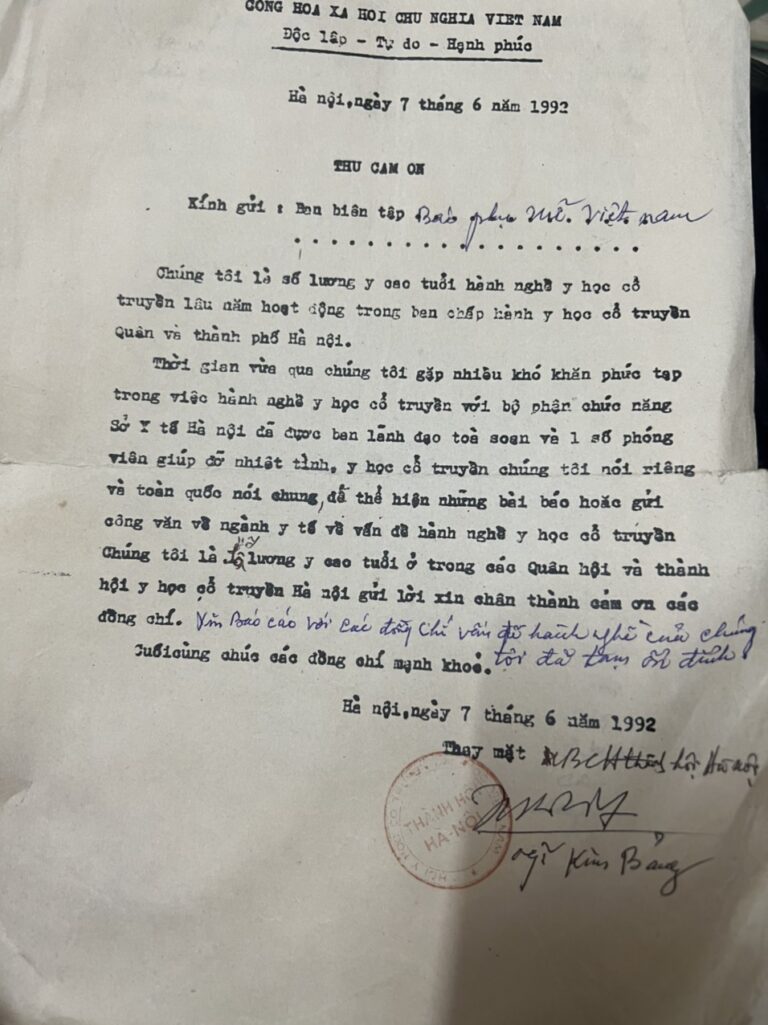 CONG HOA XA HOI CHU NGHIA VIET NAM
Độc lập - Tự do - Hạnh phúc
Hà nội,ngày 7 tháng 6 năm 1992
THU CAM ON
Kính gửi : Ban biên tập Báo phụ nữ Việt nam
. . . . . . . . . . . . . . . . . . .
Chúng tôi là số lương y cao tuổi hành nghề y học cổ
truyền lâu năm hoạt động trong ban chấp hành y học cổ truyền
Quân và thành phố Hà nội.
Thời gian vừa qua chúng tôi gặp nhiều khó khăn phức tạp
trong việc hành nghề y học cổ truyền với bộ phận chức năng
Sở Y tế Hà nội đã được ban lãnh đạo toà soạn và 1 số phóng
viên giúp đỡ nhiệt tình, y học cổ truyền chúng tôi nói riêng
và toàn quốc nói chung, đã thể hiện những bài báo hoặc gửi
công văn về ngành y tế về vấn đề hành nghề y học cổ truyền
Chúng tôi là lương y cao tuổi ở trong các Quân hội và thành
hội y học cổ truyền Hà nội gửi lời xin chân thành cảm ơn các
đồng chí. Xin Báo cáo với các đồng chí vấn đề hành nghề của chúng
tôi đã tạm ổn định
Cuối cùng chúc các đồng chí mạnh khoẻ.
Hà nội,ngày 7 tháng 6 năm 1992
Thay mặt BCH thành hội Hà nội
THÀNH HỘI
HA-NỘI
Kim Bảng